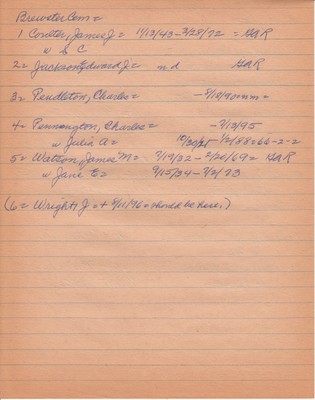 Brewster Cem =
1 Coulter, James J = 11/13/43 - 3/28/72 = GAR
w L C
2 = Jackson, Edward J = n d GAR
3 = Pendleton, Charles = - 9/18/90 mm =
4 = Pennington, Charles = - 7/13/95
w Julia A = 10/30/21 - 1/2/88 = 66-2-2
5 = Watson, James M = 7/19/32 - 2/26/69 = GAR
w Jane E = 9/15/34 - 7/2/73
(6 = Wright, J = + 9/11/96 = should be here.)